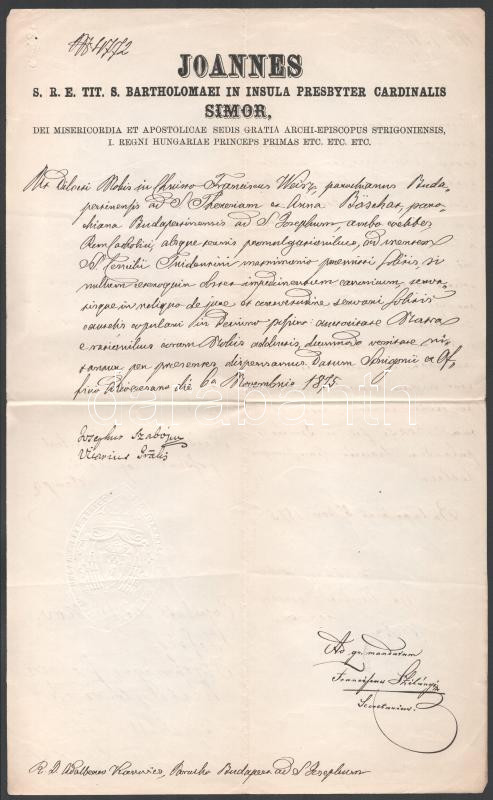 4772
JOANNES
S. R. E. TIT. S. BARTHOLOMAEI IN INSULA PRESBYTER CARDINALIS
SIMOR,
DEI MISERICORDIA ET APOSTOLICAE SEDIS GRATIA ARCHI-EPISCOPUS STRIGONIENSIS,
I. REGNI HUNGARIAE PRINCEPS PRIMAS ETC. ETC. ETC.
Ut Dilecti Nobis in Christo Franciscus Weisz, parochianus Buda-
pestinensis ad S. Theresiam et Anna Böschar, paro-
chiana Budapestinensis ad S. Josephum, ambo coelibes
Rom. catholici, absque ternis promulgationibus, ad mentem
S. Concilii Tridentini matrimonio praemitti solitis, si
nullum ceteroquin obstet impedimentum canonicum, serva-
tisque in reliquo de jure et consvetudine servari solitis
copulari in Domino possint: auctoritate Nostra
e rationibus coram Nobis adductis, dummodo veritate ni-
tantur, per praesentes dispensamus. Datum Strigonii ex Of-
ficio Dioecesano die 6a Novembris 1875.
Josephus Szabó
Vicarius Grālis
darabanth
Ad mandatum
Franciscus
Secretarius.
R. D. Adalberto Parocho Budapest ad S. Josephum